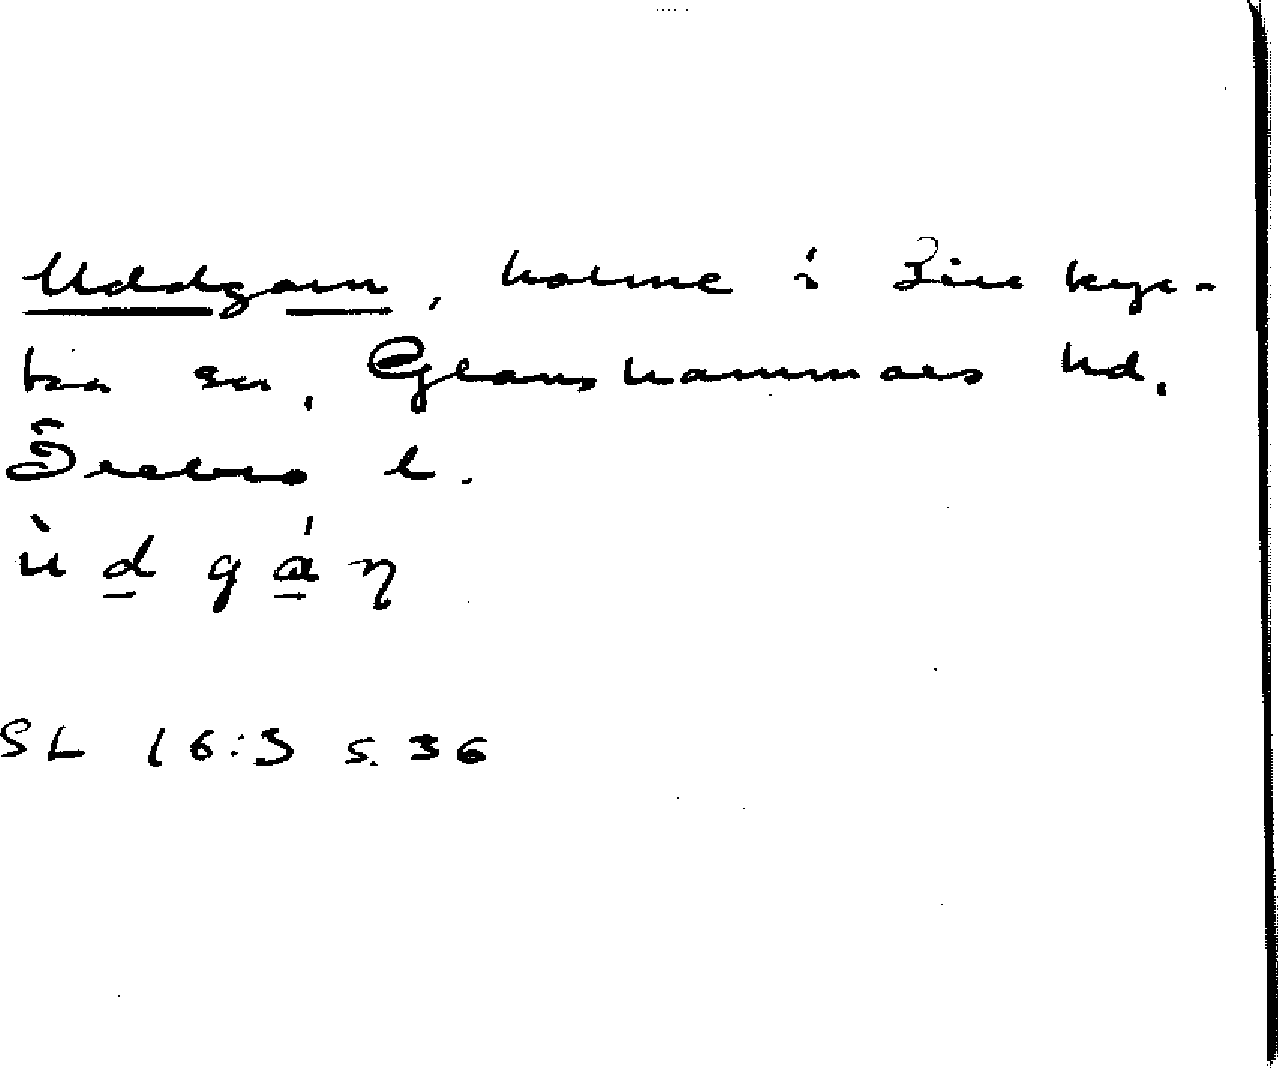 Uddgarn, holme i Lillkyr-
ka sn, Glanshammars hd.
Örebro l.
ù d̲ g á̲ ɳ
SL 16:3 s. 36